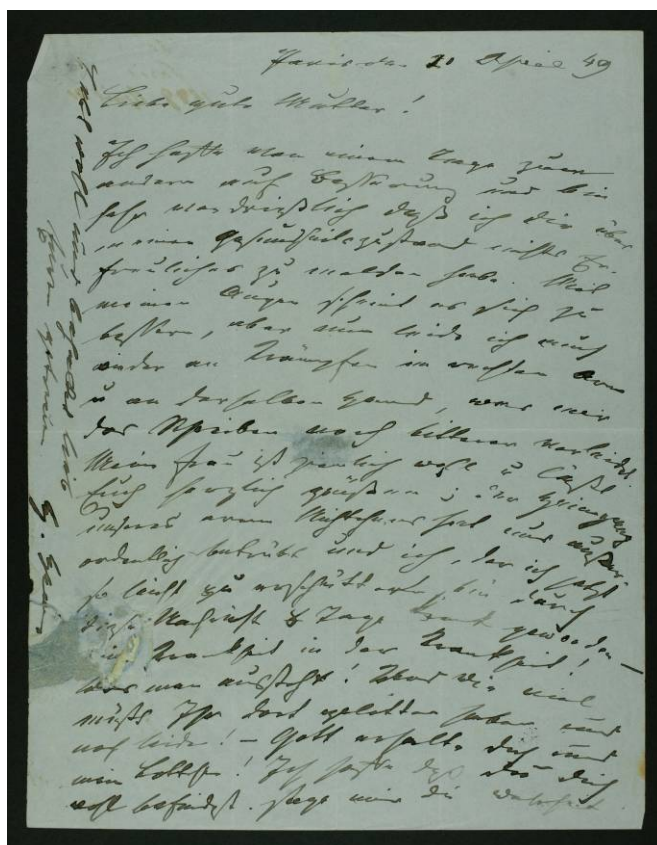 Paris den 21 April 49
Liebe gute Mutter!
Ich hoffte von einem Tage zum
andern auf Besserung und bin
sehr verdrießlich daß ich Dir über
meinen Gesundheitszustand nichts Er-
freuliches zu melden habe. Mit
meinen Augen scheint es sich zu
bessern, aber nun leide ich auch
wieder an Krämpfen im rechten Arm
u an derselben Hand, was mir
das Schreiben noch bitterer verleidet.
Meine Frau ist ziemlich wohl u läßt
Euch herzlich grüßen; der Heimgang
unseres armen hat uns außer-
ordentlich betrübt und ich, der ich jetzt
so leicht zu erschüttern, bin durch
diese Nachricht 8 Tage krank geworden –
die Krankheit in der Krankheit!
Was man aussteht! Aber wie viel
müßt Ihr dort gelitten haben und
noch leide! – Gott erhalte Dich und
mein Lottchen! Ich hoffe daß Du Dich
wohl befindest. sage mir die Wahrheit
Lebt wohl und behaltet lieb
Euren getreuen
H. Heine